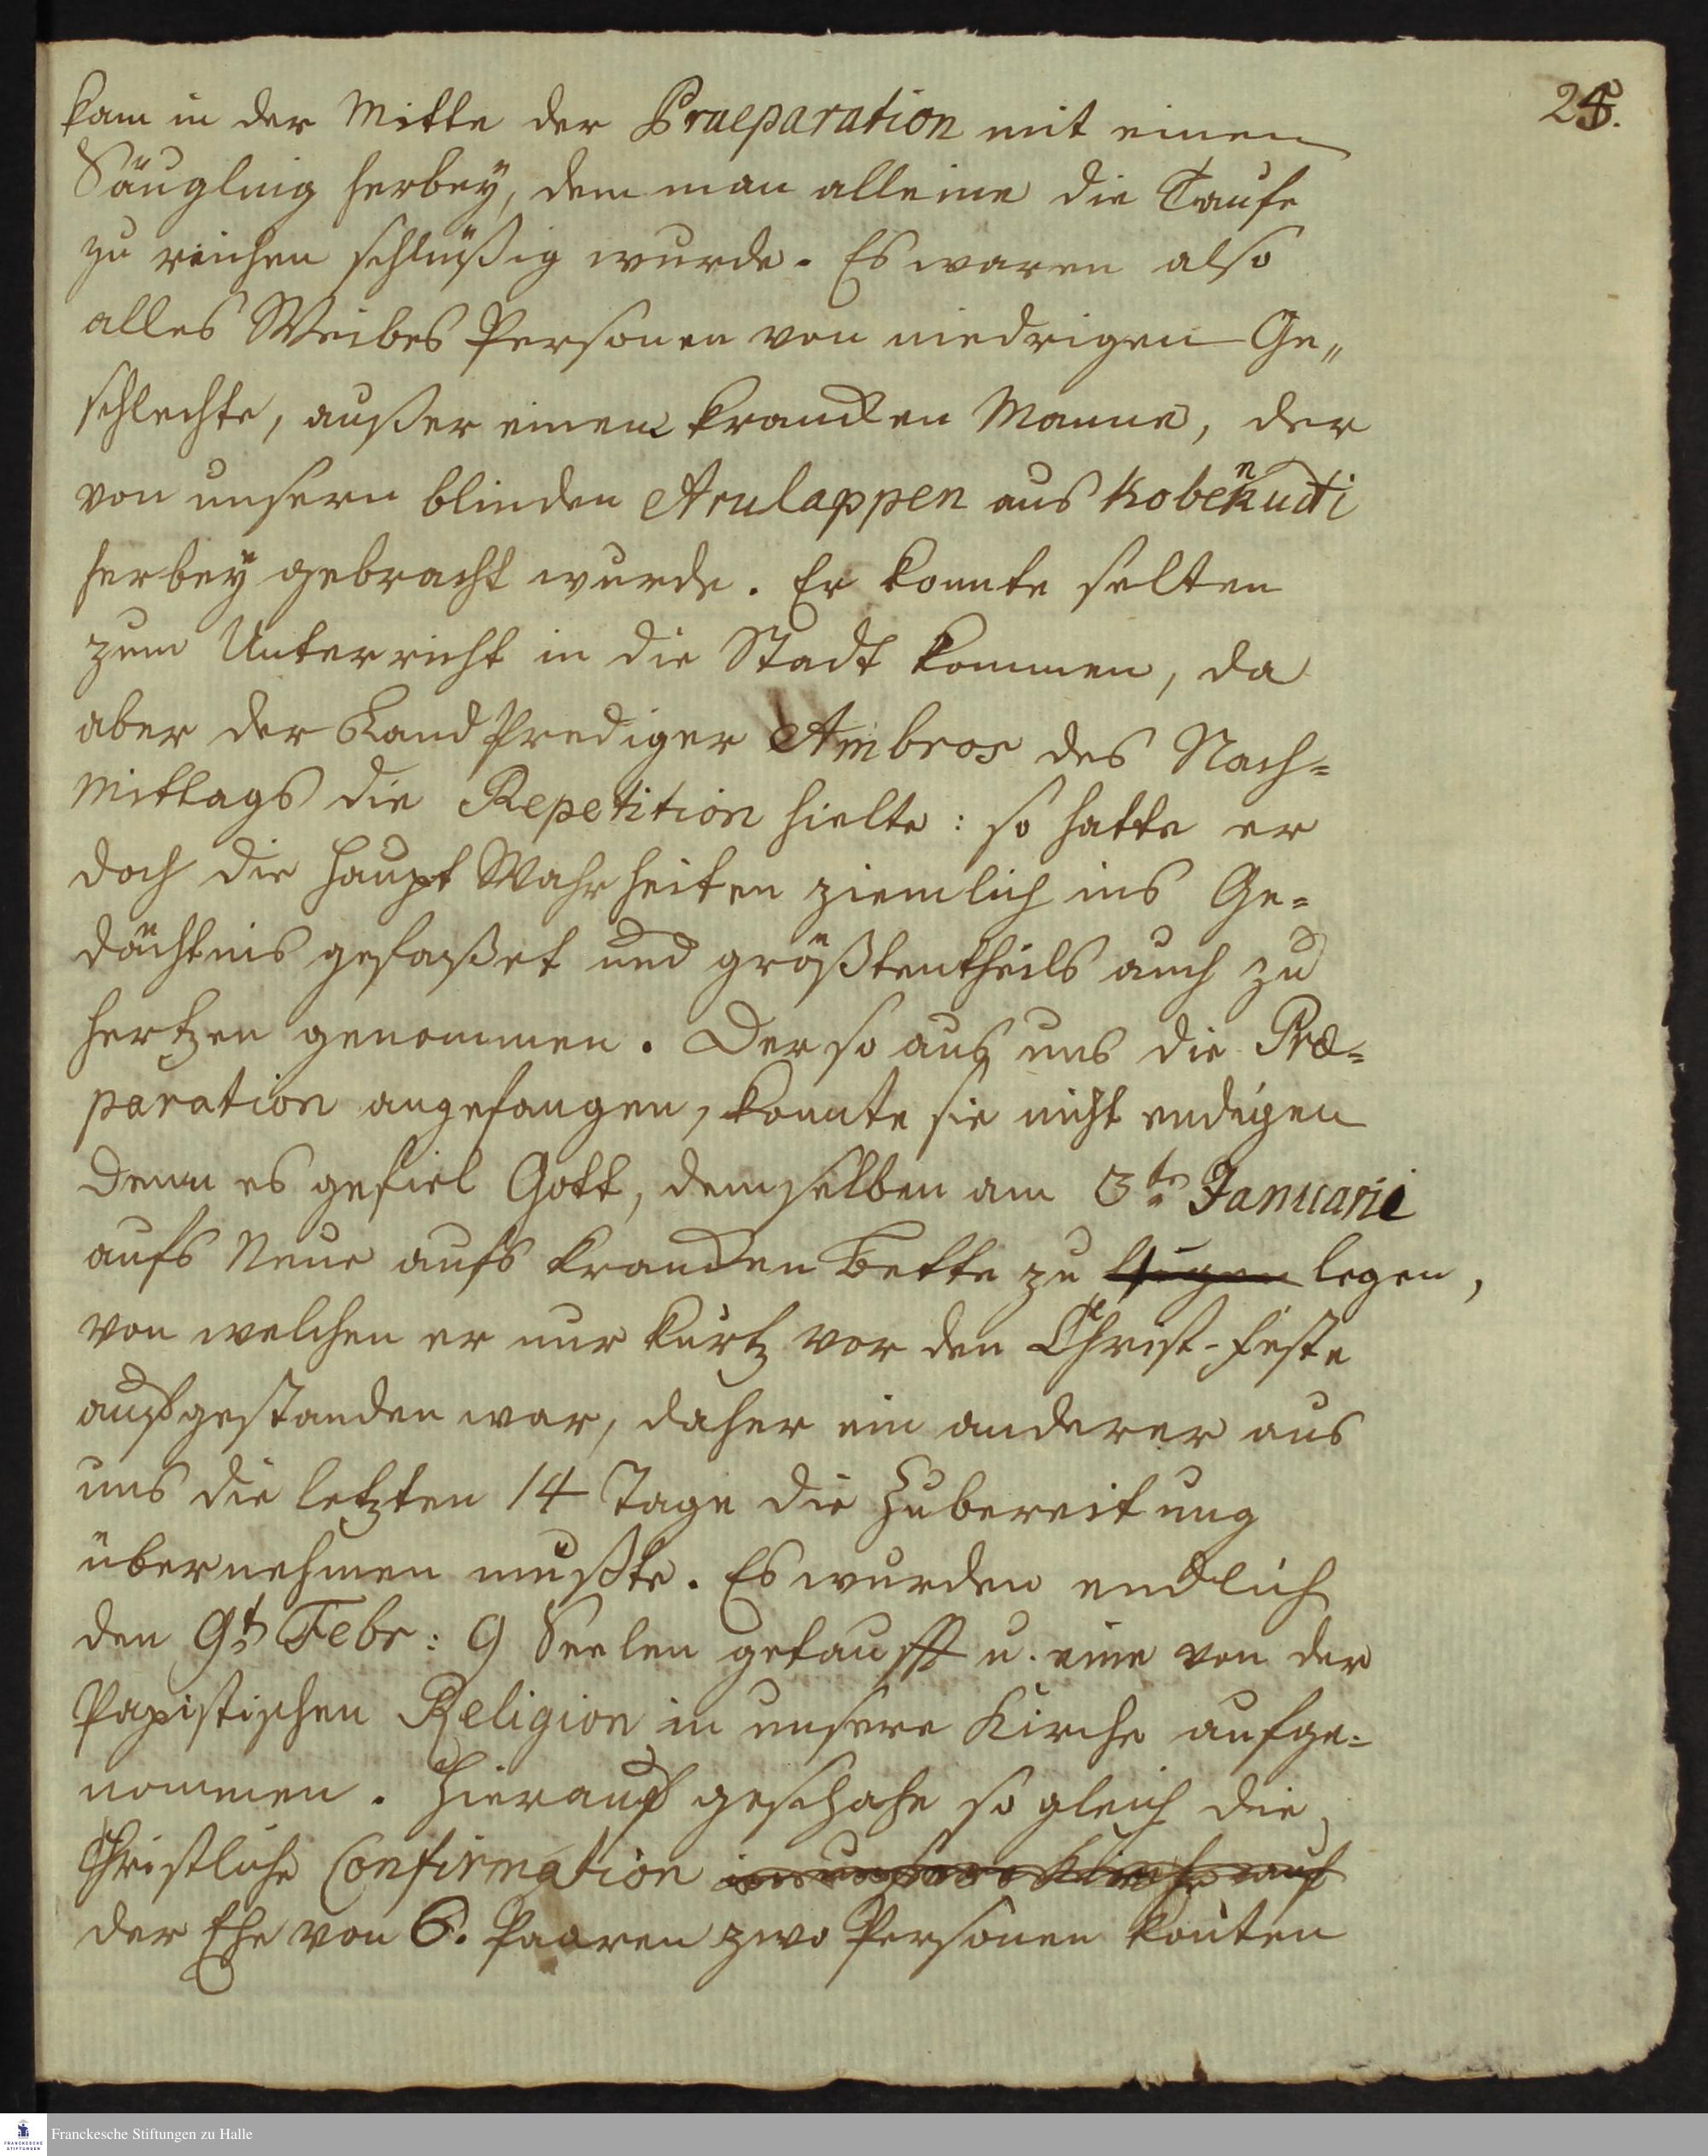 25.
kam in der Mitte der Praeparation mit einem
Säugling herbey, dem man alleine die Taufe
zu reichen schlüßig wurde. Es waren also
alles Weibes Personen von niedrigen Ge„
schlechte, außer einem krancken Manne, der
von unsern blinden Arulappen aus Kobenkudi
herbey gebracht wurde. Er konnte selten
zum Unterricht in die Stadt kommen, da
aber der Land Prediger Ambros des Nach=
mittags die Repetition hielte: so hatte er
doch die Haupt Wahrheiten ziemlich ins Ge=
dächtnis gefaßet und größtentheils auch zu
Hertzen genommen. Der so aus uns die Præ=
paration angefangen, konnte sie nicht endigen
Denn es gefiel Gott, demselben am 3te Januarii
aufs Neue aufs krancken Bette zu legen,
von welchen er nur kurtz vor den Christ-Feste
aufgestanden war, daher ein anderer aus
uns die letzten 14 Tage die Zubereitung
übernehmen mußte. Es wurden endlich
den 9t Febr: 9 Seelen getaufft u. eine von der
Papistischen Religion in unsere Kirche aufge=
nommen. Hierauf geschahe so gleich die
Christliche Confirmation in unsere Kirche auf
der Ehe von 6. Paaren zwo Personen konten
Franckesche Stiftungen zu Halle